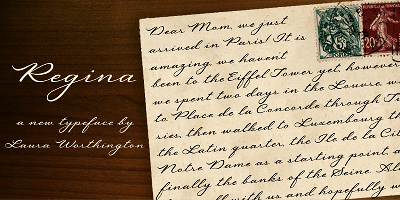 Regina
a new typeface by
Laura Worthington
Dear Mom, we just
arrived in Paris! It is
amazing, we havent
been to the Eiffel Tower yet, however
we spent two days in the Louvre, w
to Place de la Concorde through T
ries, then walked to Luxembourg th
the Latin quarter, the Ile de la Cit
Notre Dame as a starting point, a
finally the banks of the Seine. Al
with us and hopefully w
5
20